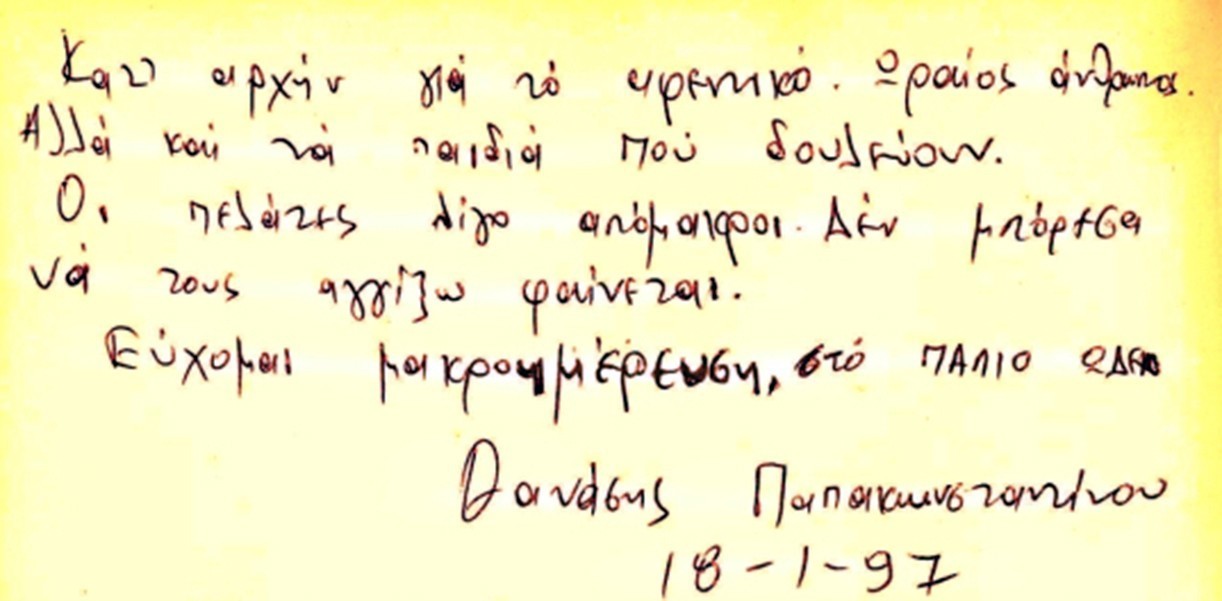 Κατ' αρχήν γιά τό αφεντικό. Ωραίος άνθρωπος.
Αλλά καί τά παιδιά πού δουλεύουν.
Οι πελάτες λίγο απόμακροι. Δέν μπόρεσα
νά τους αγγίξω φαίνεται.
Εύχομαι μακροημέρευση, στό ΠΑΛΙΟ ΩΔΕΙΟ
Θανάσης Παπακωνσταντίνου
18-1-97